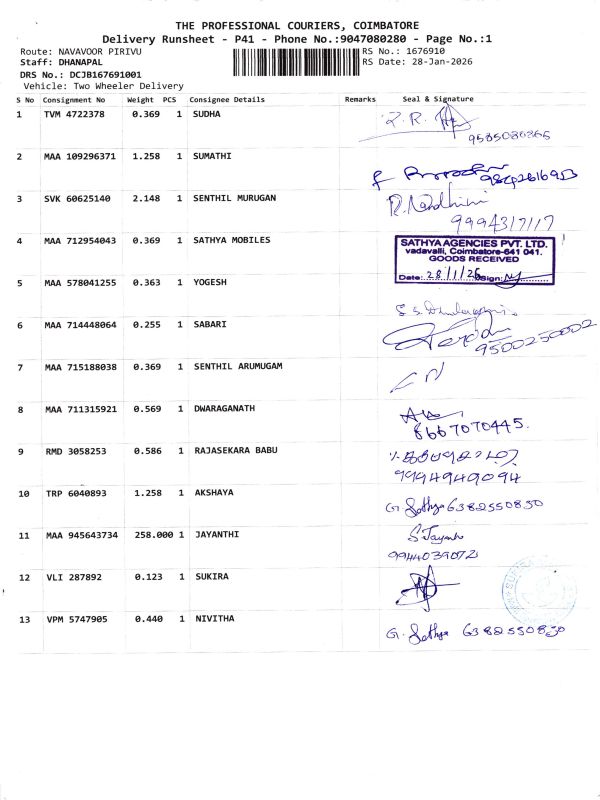 THE PROFESSIONAL COURIERS, COIMBATORE
Delivery Runsheet - P41 - Phone No.:9047080280 - Page No.:1
Route: NAVAVOOR PIRIVU RS No.: 1676910
Staff: DHANAPAL RS Date: 28-Jan-2026
DRS No.: DCJB167691001
Vehicle: Two Wheeler Delivery
S No Consignment No Weight PCS Consignee Details Remarks Seal & Signature
1 TVM 4722378 0.369 1 SUDHA
2 MAA 109296371 1.258 1 SUMATHI
3 SVK 60625140 2.148 1 SENTHIL MURUGAN
9994317117
4 MAA 712954043 0.369 1 SATHYA MOBILES
SATHYA AGENCIES PVT. LTD.
vadavalli, Coimbatore-641 041.
GOODS RECEIVED
Date: 28/1/26 Sign:
5 MAA 578041255 0.363 1 YOGESH
6 MAA 714448064 0.255 1 SABARI
9500250002
7 MAA 715188038 0.369 1 SENTHIL ARUMUGAM
8 MAA 711315921 0.569 1 DWARAGANATH
8667070445.
9 RMD 3058253 0.586 1 RAJASEKARA BABU
9994949094
10 TRP 6040893 1.258 1 AKSHAYA
G. Sathya 6382550830
11 MAA 945643734 258.000 1 JAYANTHI
9944039072
12 VLI 287892 0.123 1 SUKIRA
13 VPM 5747905 0.440 1 NIVITHA
G. Sathya 6382550830